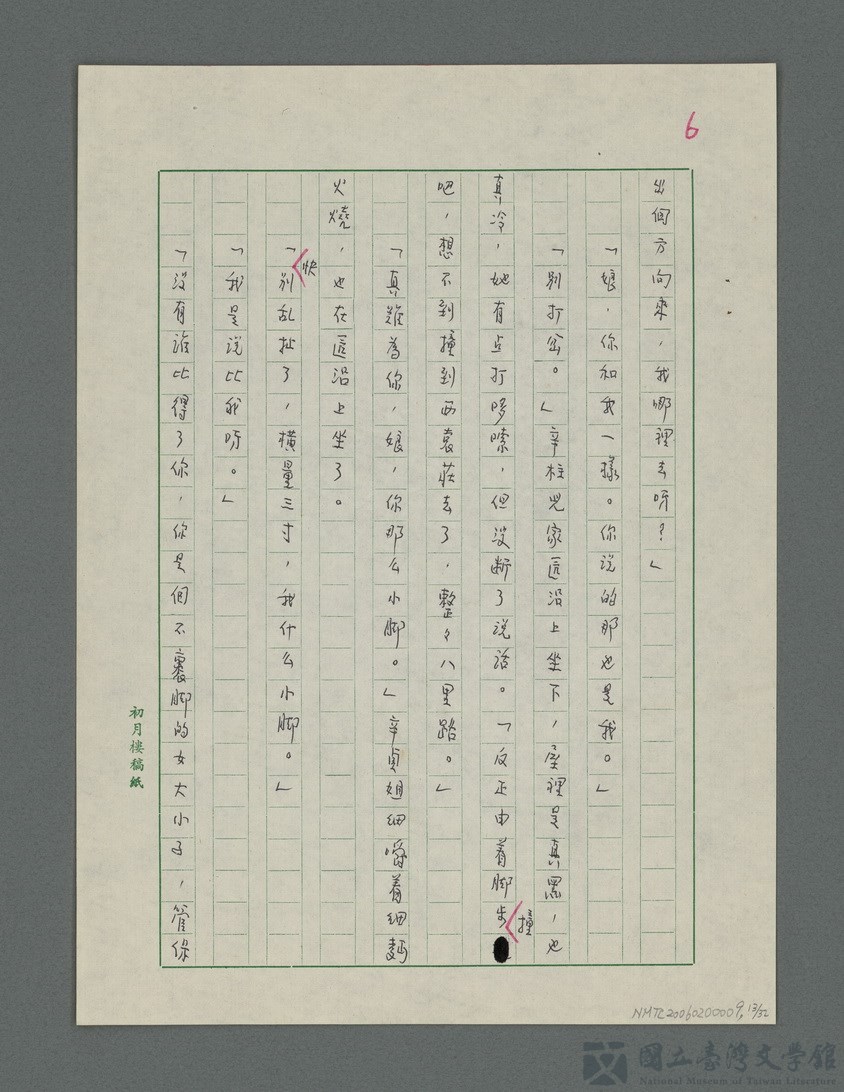 6
出個方向來，我哪裡去呀？」
「娘，你和我一樣。你說的那也是我。」
「別打岔。」辛柱兒家匟沿上坐下，屋裡是真黑，也
真冷，她有点打哆嗦，但沒断了說話。「反正由着脚步撞
吧，想不到撞到西袁莊去了，整々八里路。」
「真難為你，娘，你那么小脚。」辛貞姐細嚼着細麪
火燒，也在匟沿上坐了。
「快別乱扯了，橫量三寸，我什么小脚。」
「我是說比我呀。」
「沒有誰比得了你，你是個不裹脚的女大小子，管保
初月樓稿紙
NMTL20060200009, 13/32
國立臺灣文學館
National Museum of Taiwan Literature